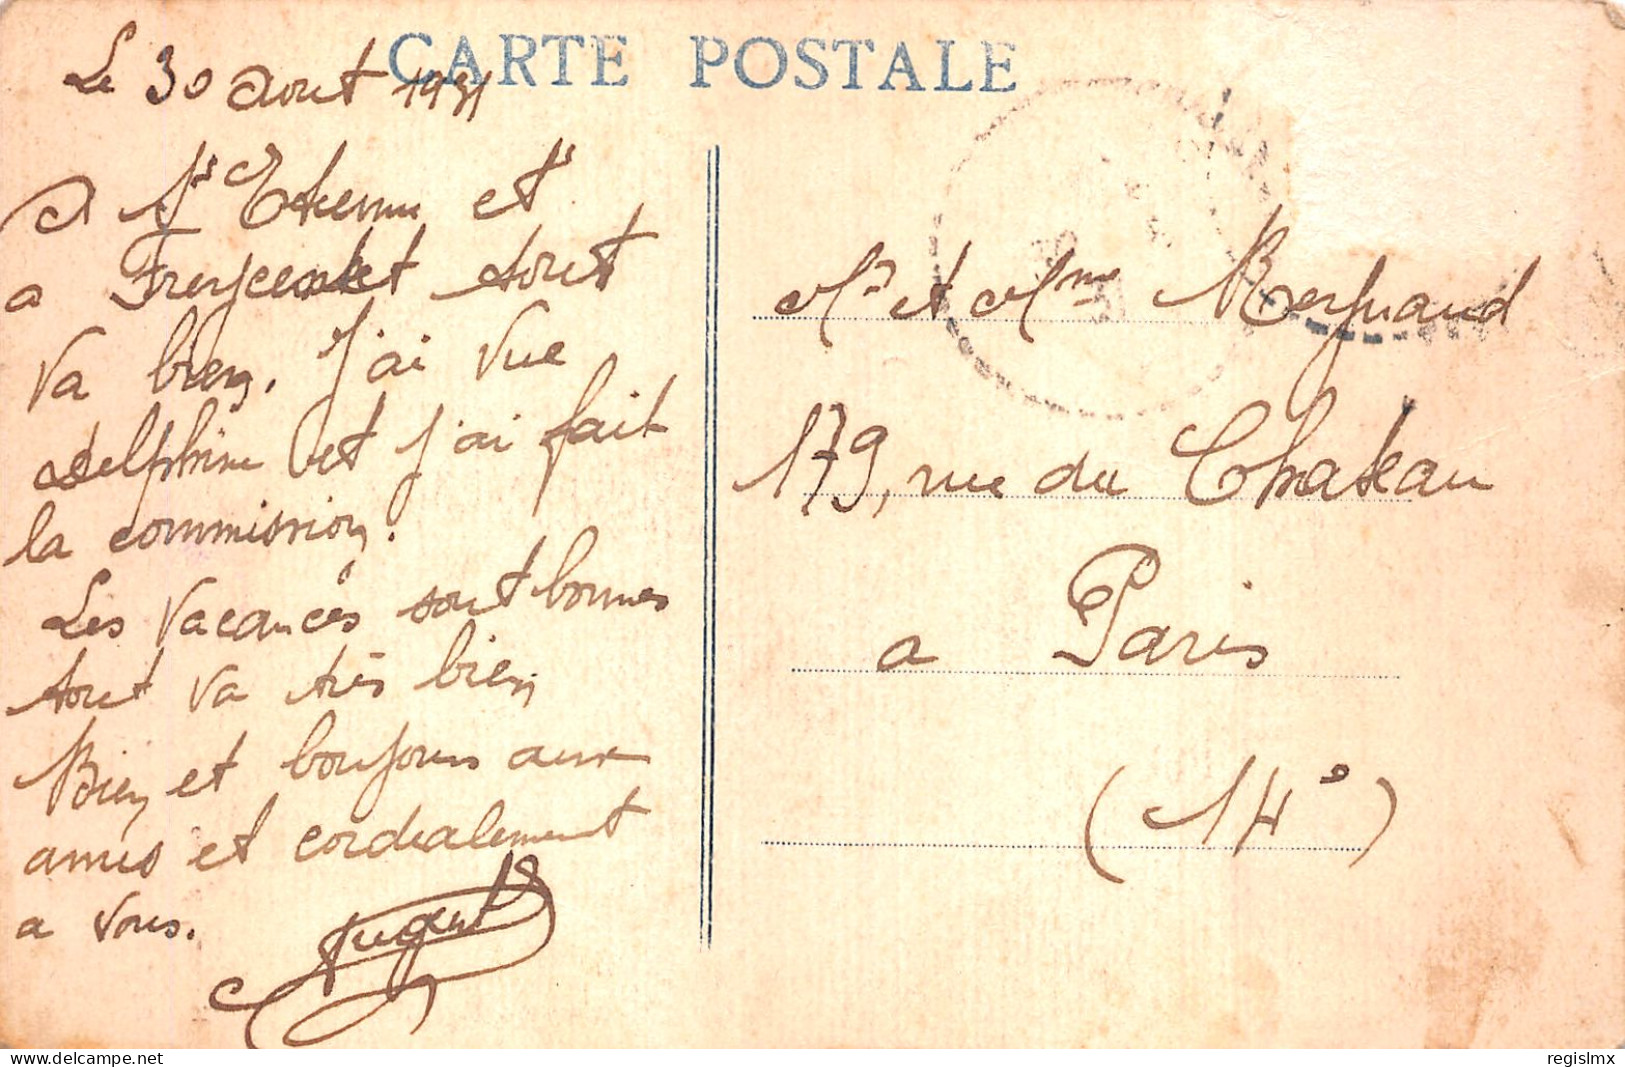 CARTE POSTALE
Le 30 aout 1931
a St Etienne et
a Freycenet tout
va bien. J'ai vue
Delphine et j'ai fait
la commission.
Les vacances sont bonnes
tout va très bien
Bien et boujours aux
amis et cordialement
a vous.
Mr et Mme
179, rue du Chateau
a Paris
(14e)
regislmx